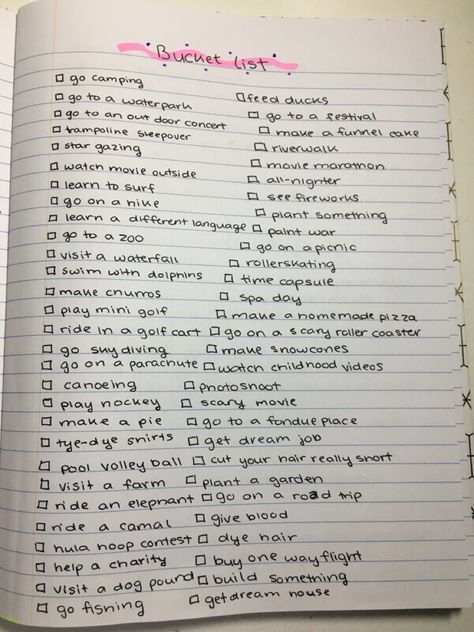 Bucket list
go camping
go to a waterpark
go to an out door concert
trampoline sleepover
star gazing
watch movie outside
learn to surf
go on a hike
learn a different language
go to a zoo
visit a waterfall
swim with dolphins
make churros
play mini golf
ride in a golf cart
go sky diving
go on a parachute
canoeing
play hockey
make a pie
tye-dye shirts
pool volley ball
visit a farm
ride an elephant
ride a camal
hula hoop contest
help a charity
visit a dog pound
go fishing
feed ducks
go to a festival
make a funnel cake
riverwalk
movie marathon
all-nighter
see fireworks
plant something
paint war
go on a picnic
rollerskating
time capsule
spa day
make a homemade pizza
go on a scary roller coaster
make snowcones
watch childhood videos
photoshoot
scary movie
go to a fondue place
get dream job
cut your hair really short
plant a garden
go on a road trip
give blood
dye hair
buy one way flight
build something
get dream house